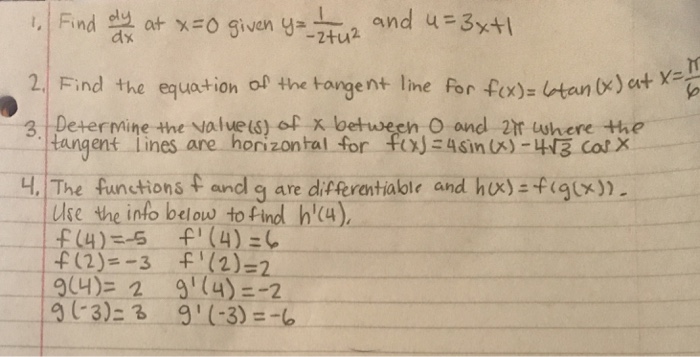 1. Find dy/dx at x=0 given y= 1/(-2+u²) and u=3x+1
2. Find the equation of the tangent line for f(x)=6tan(x) at x=π/6
3. Determine the value(s) of x between 0 and 2π where the
tangent lines are horizontal for f(x)=4sin(x)-4√3 cos x
4. The functions f and g are differentiable and h(x)=f(g(x)).
Use the info below to find h'(4).
f(4)=-5 f'(4)=6
f(2)=-3 f'(2)=2
g(4)= 2 g'(4)=-2
g(-3)=3 g'(-3)=-6